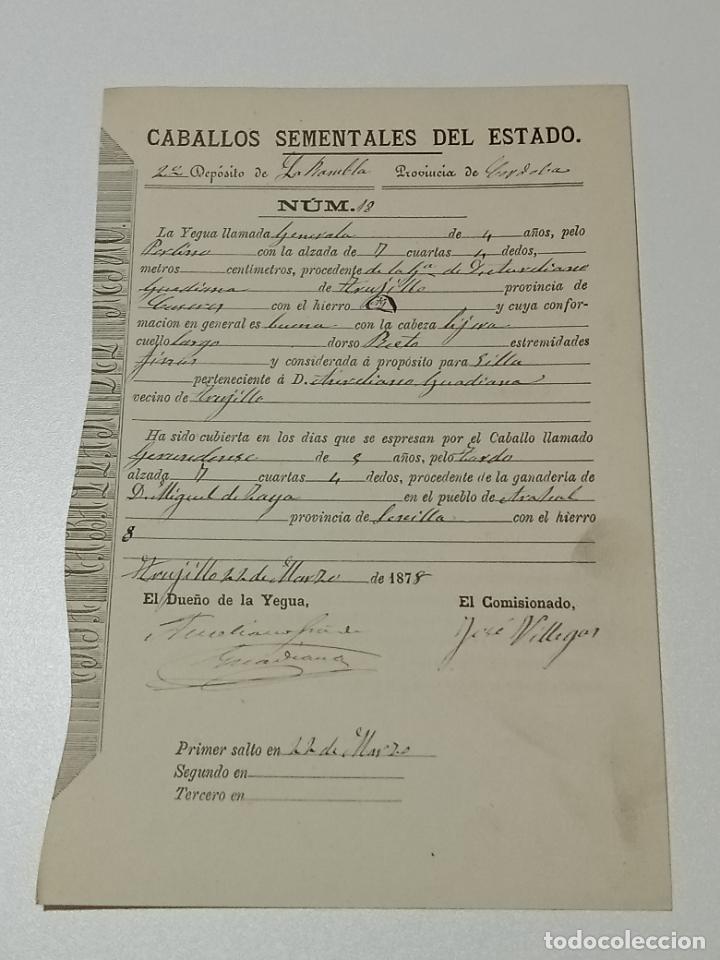 CABALLOS SEMENTALES DEL ESTADO.
2º Depósito de La Rambla Provincia de Cordoba
NÚM. 18
La Yegua llamada Generala de 4 años, pelo
Perlino con la alzada de 7 cuartas 4 dedos,
metros centímetros, procedente de la Gª de D. Aureliano
Guadiana de Trujillo provincia de
Caceres con el hierro y cuya confor-
macion en general es buena con la cabeza lijera
cuello largo dorso Recto estremidades
finas y considerada á propósito para Silla
perteneciente á D. Aureliano Guadiana
vecino de Trujillo
Ha sido cubierta en los dias que se espresan por el Caballo llamado
Gerundense de 5 años, pelo tordo
alzada 7 cuartas 4 dedos, procedente de la ganadería de
D. Miguel de Zayas en el pueblo de Arahal
provincia de Sevilla con el hierro
8
Trujillo 22 de Marzo de 1878
El Dueño de la Yegua, El Comisionado,
Aureliano Gª de José Villegas
Guadiana
Primer salto en 22 de Marzo
Segundo en
Tercero en
todocoleccion
todocoleccion.net